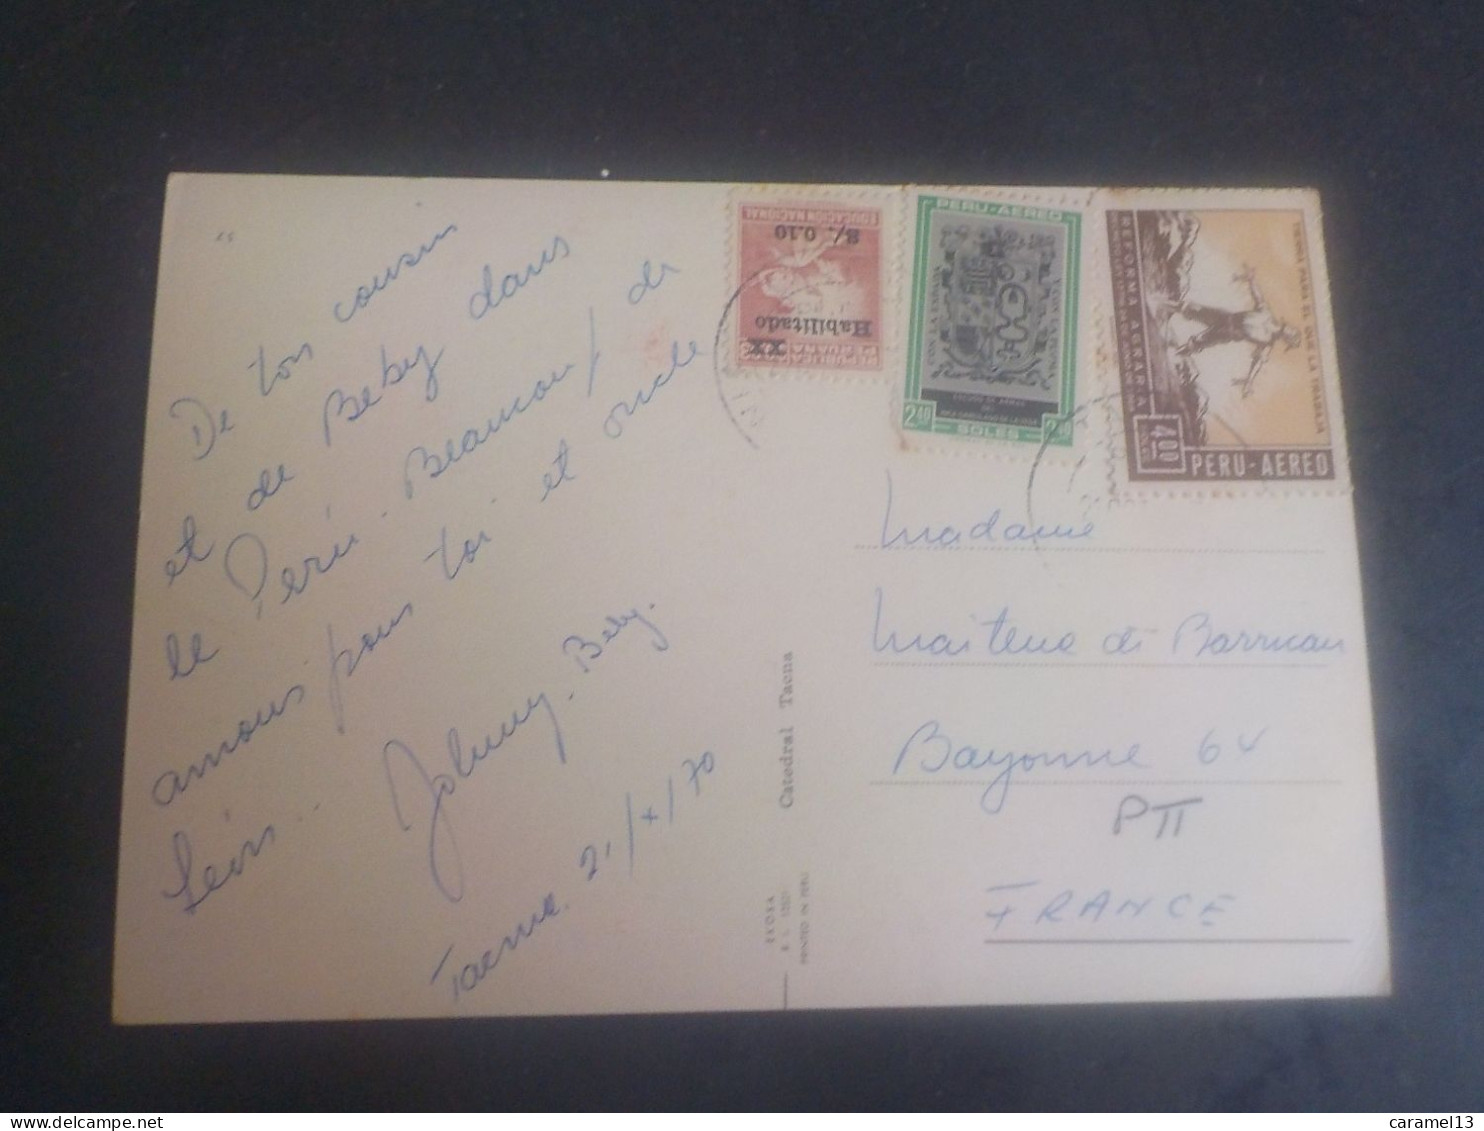 De ton cousin
et de Beby dans
le Pérú. Beaucoup de
amous pour toi et oncle
Johnny. Beby.
Tacna. 21/X/70
Catedral Tacna
EKOSA
PRINTED IN PERU
REPUBLICA PERUANA
XX
Habilitado
S/. 0.10
EDUCACION NACIONAL
PERU-AEREO
CON LA ESPADA Y CON LA PLUMA
ESCUDO DE ARMAS
DEL
INCA GARCILASO DE LA VEGA
2.40 SOLES 2.40
TIERRA PARA EL QUE LA TRABAJA
REFORMA AGRARIA
4.00
SOLES
PERU-AEREO
Madame
Maitena de Barman
Bayonne 64
PTT
FRANCE
caramel13